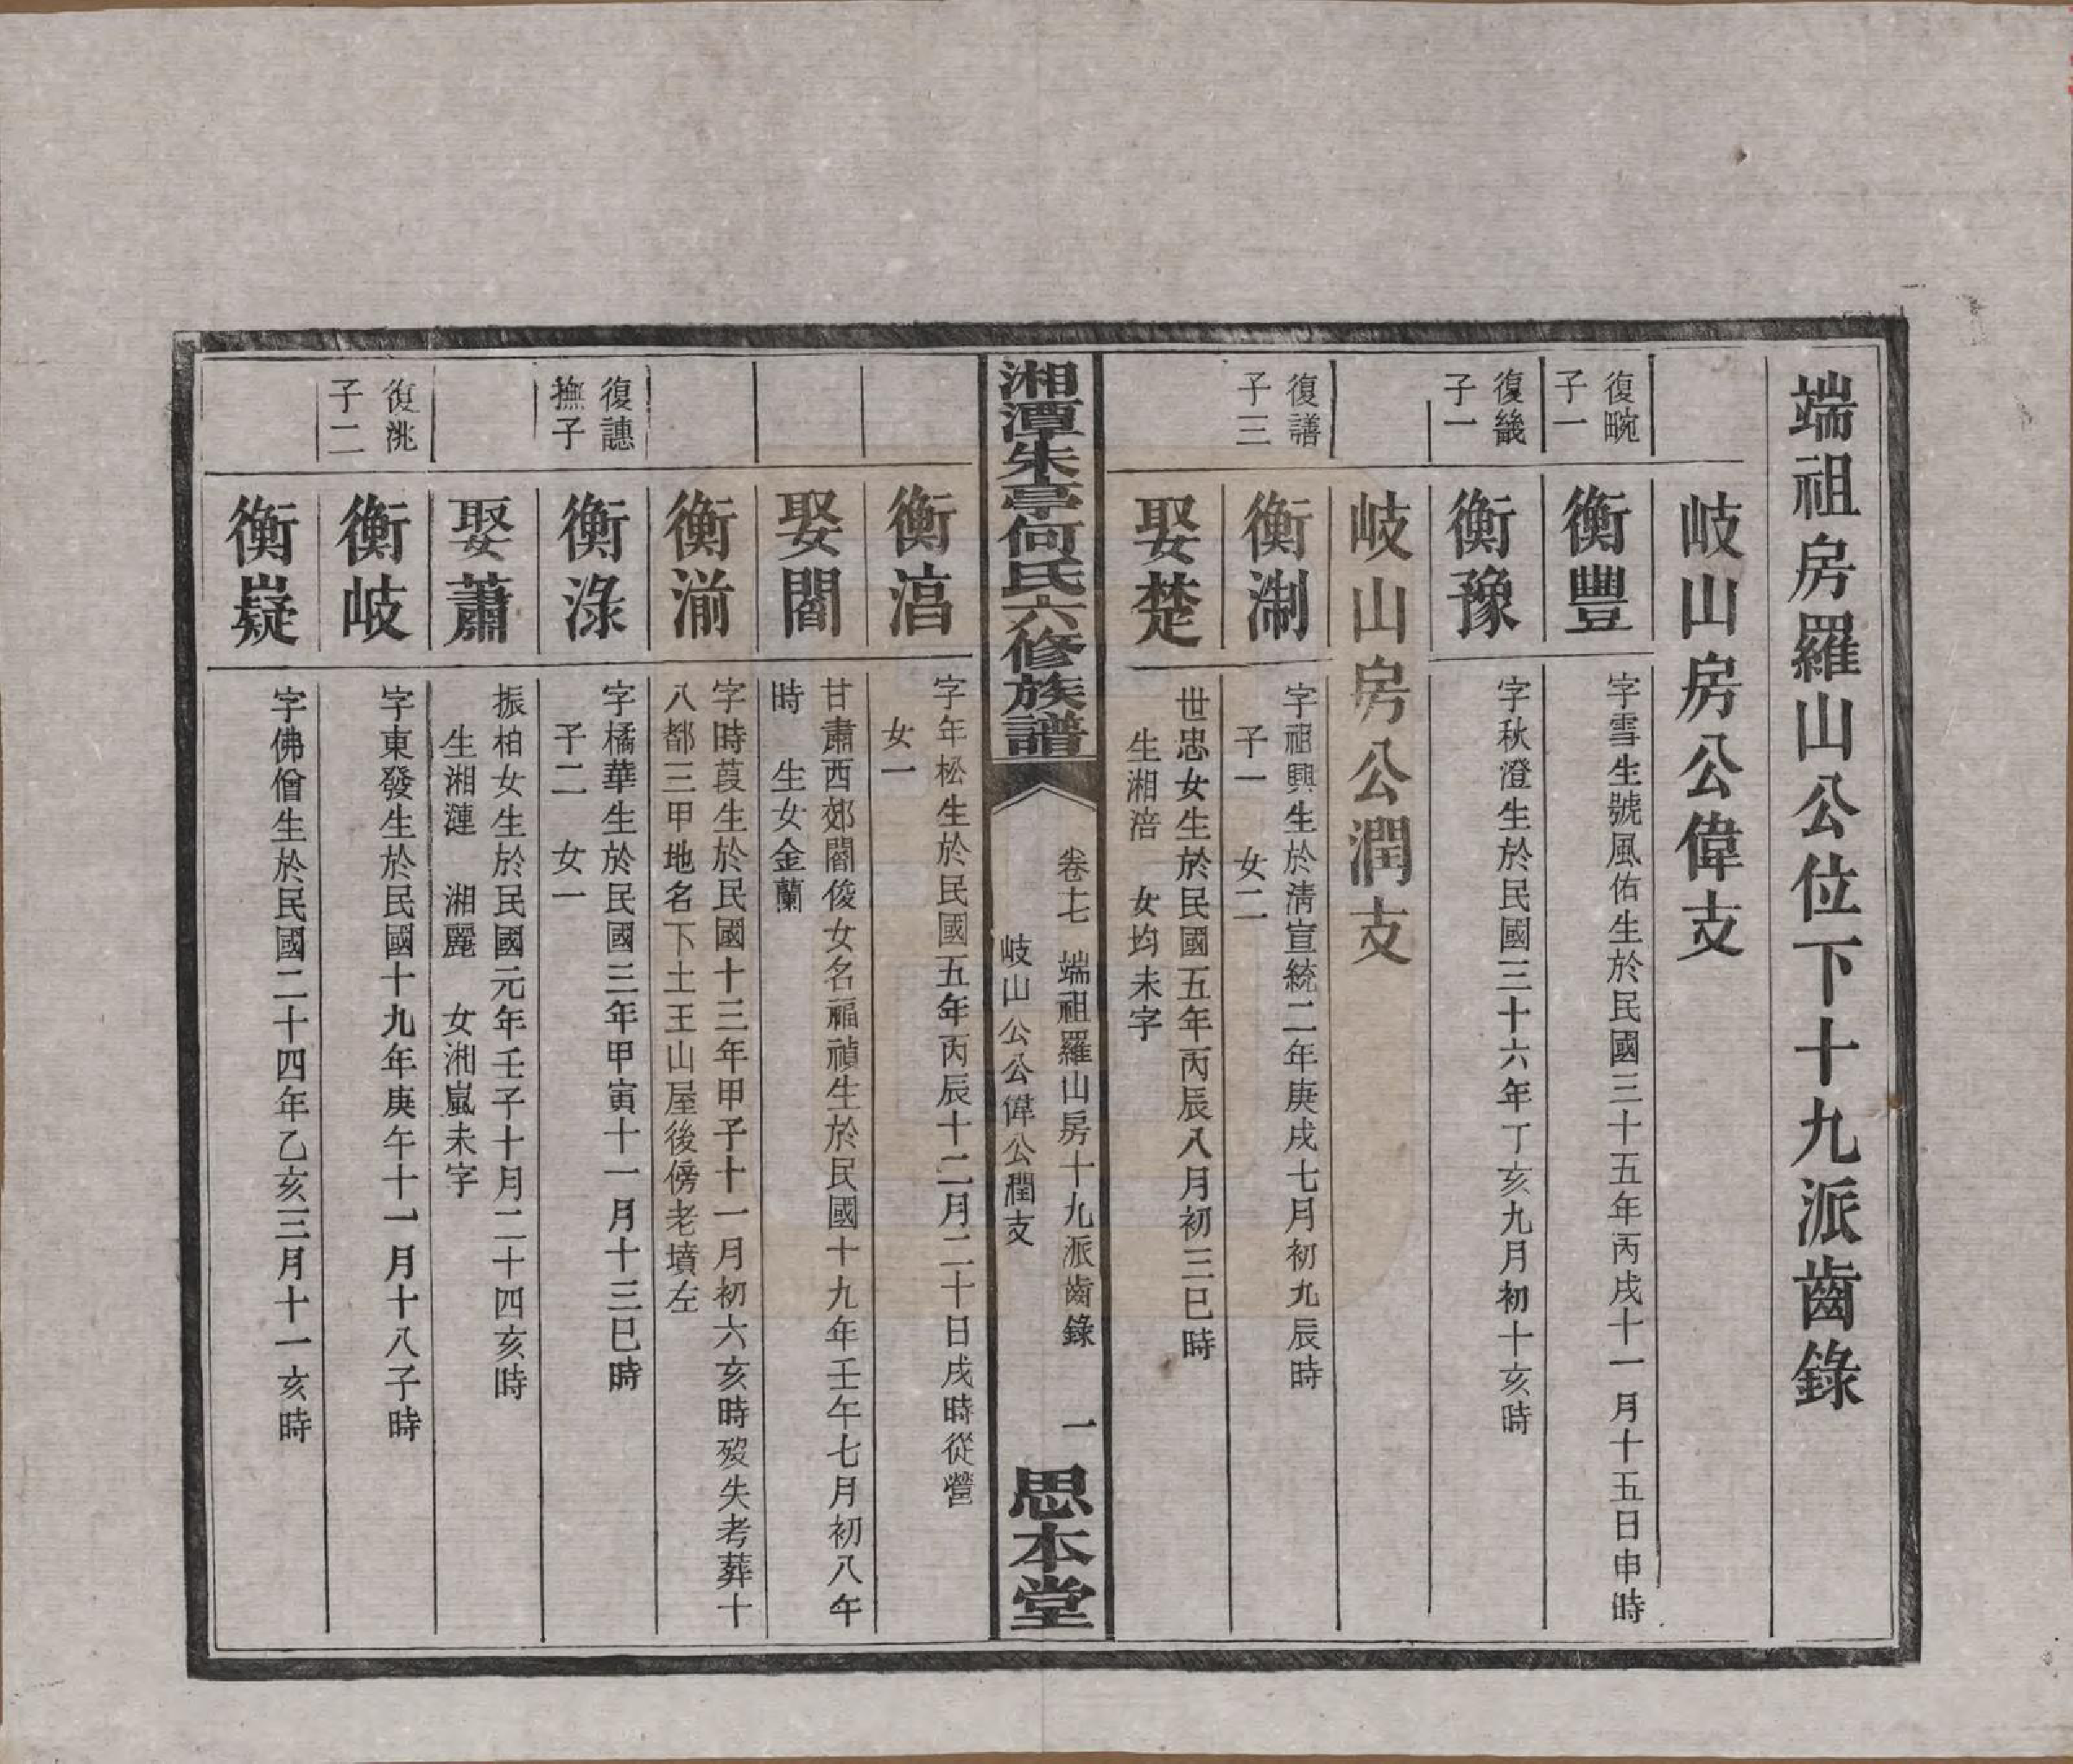 端祖房羅山公位下十九派齒錄
岐山房公偉支
復畹
子一
衡豐
字雪生號風佑生於民國三十五年丙戌十一月十五日申時
復畿
子一
衡豫
字秋澄生於民國三十六年丁亥九月初十亥時
岐山房公潤支
復譜
子三
衡淛
字祖興生於清宣統二年庚戌七月初九辰時
子一 女二
娶楚
世忠女生於民國五年丙辰八月初三巳時
生湘涪 女均未字
湘潭朱亭何氏六修族譜
卷十七 端祖羅山房十九派齒錄 一
岐山公公偉公潤支
思本堂
衡湻
字年松生於民國五年丙辰十二月二十日戌時從營
女一
娶閻
甘肅西郊閻俊女名福禎生於民國十九年壬午七月初八午
時 生女金蘭
衡湔
字時葭生於民國十三年甲子十一月初六亥時歿失考葬十
八都三甲地名下土王山屋後傍老墳左
復譓
撫子
衡淥
字橘華生於民國三年甲寅十一月十三巳時
子二 女一
娶蕭
振柏女生於民國元年壬子十月二十四亥時
生湘漣 湘麗 女湘嵐未字
復洮
子二
衡岐
字東發生於民國十九年庚午十一月十八子時
衡嶷
字佛僧生於民國二十四年乙亥三月十一亥時